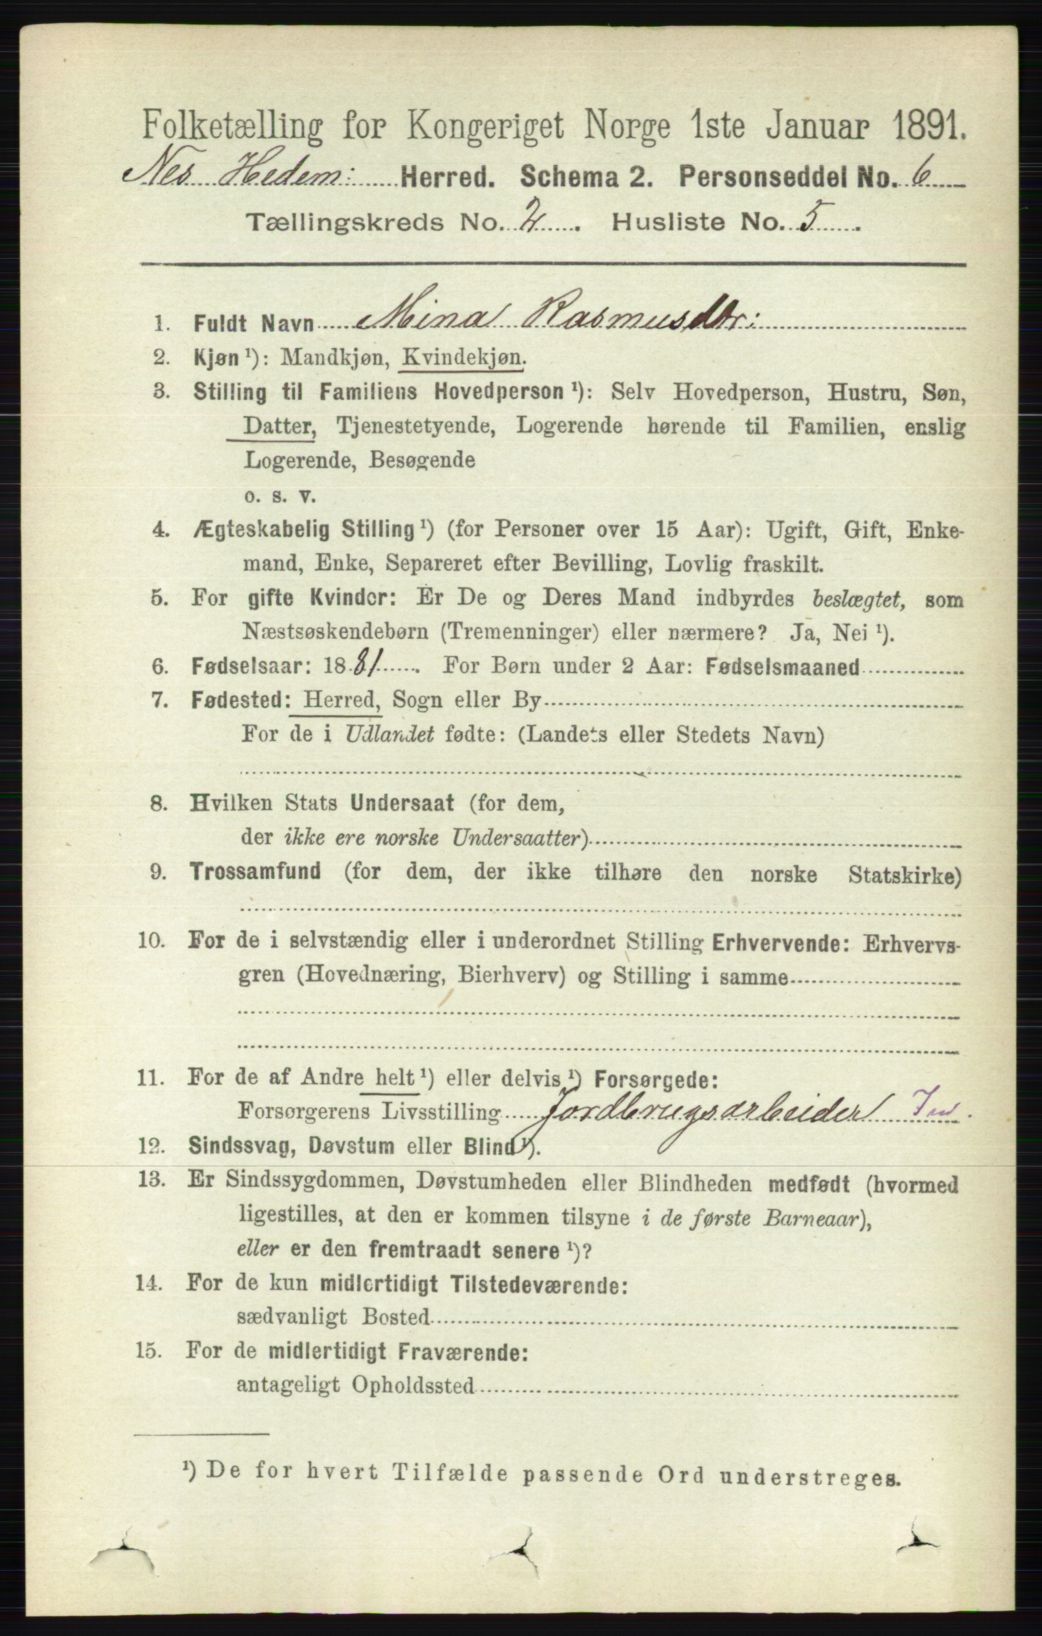 Folketælling for Kongeriget Norge 1ste Januar 1891.
Nes Hedem: Herred. Schema 2. Personseddel No. 6
Tællingskreds No. 2. Husliste No. 5.
1. Fuldt Navn Mina Rasmusdtr:
2. Kjøn ¹): Mandkjøn, Kvindekjøn.
3. Stilling til Familiens Hovedperson ¹): Selv Hovedperson, Hustru, Søn,
Datter, Tjenestetyende, Logerende hørende til Familien, enslig
Logerende, Besøgende
o. s. v.
4. Ægteskabelig Stilling ¹) (for Personer over 15 Aar): Ugift, Gift, Enke-
mand, Enke, Separeret efter Bevilling, Lovlig fraskilt.
5. For gifte Kvinder: Er De og Deres Mand indbyrdes beslægtet, som
Næstsøskendebørn (Tremenninger) eller nærmere? Ja, Nei ¹).
6. Fødselsaar: 1881. For Børn under 2 Aar: Fødselsmaaned
7. Fødested: Herred, Sogn eller By
For de i Udlandet fødte: (Landets eller Stedets Navn)
8. Hvilken Stats Undersaat (for dem,
der ikke ere norske Undersaatter)
9. Trossamfund (for dem, der ikke tilhøre den norske Statskirke)
10. For de i selvstændig eller i underordnet Stilling Erhvervende: Erhvervs-
gren (Hovednæring, Bierhverv) og Stilling i samme
11. For de af Andre helt ¹) eller delvis ¹) Forsørgede:
Forsørgerens Livsstilling Jordbrugsarbeider
12. Sindssvag, Døvstum eller Blind ¹).
13. Er Sindssygdommen, Døvstumheden eller Blindheden medfødt (hvormed
ligestilles, at den er kommen tilsyne i de første Barneaar),
eller er den fremtraadt senere ¹)?
14. For de kun midlertidigt Tilstedeværende:
sædvanligt Bosted
15. For de midlertidigt Fraværende:
antageligt Opholdssted
¹) De for hvert Tilfælde passende Ord understreges.